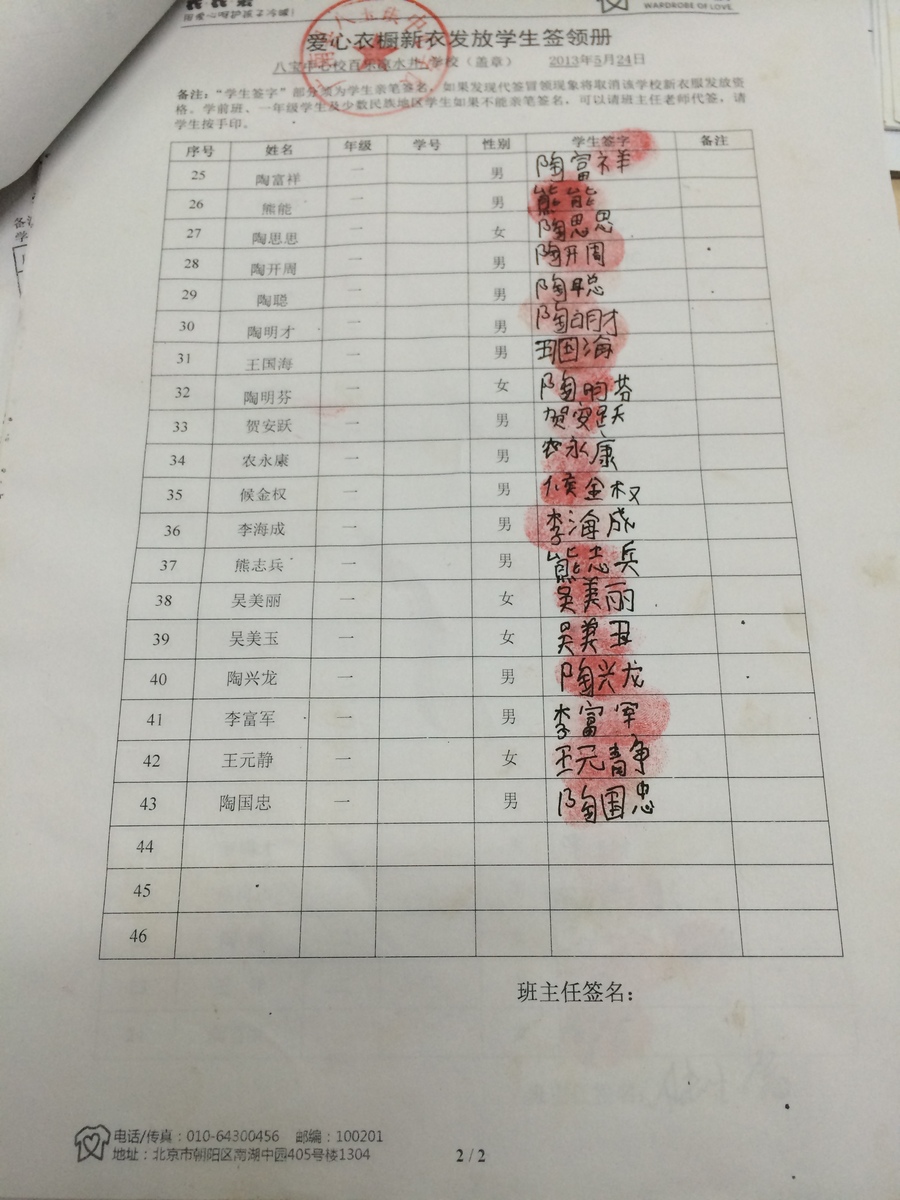 WARDROBE OF LOVE
爱心衣橱新衣发放学生签领册
八宝中心校百乐凉水井 学校（盖章） 2013年5月24日
备注："学生签字"部分须为学生亲笔签名，如果发现代签冒领现象将取消该学校新衣服发放资
格。学前班、一年级学生及少数民族地区学生如果不能亲笔签名，可以请班主任老师代签，请
学生按手印。
序号 姓名 年级 学号 性别 学生签字 备注
25 陶富祥 一 男 陶富祥
26 熊能 一 男 熊能
27 陶思思 一 女 陶思思
28 陶开周 一 男 陶开周
29 陶聪 一 男 陶聪
30 陶明才 一 男 陶明才
31 王国海 一 男 王国海
32 陶明芬 一 女 陶明芬
33 贺安跃 一 男 贺安跃
34 农永康 一 男 农永康
35 候金权 一 男 候金权
36 李海成 一 男 李海成
37 熊志兵 一 男 熊志兵
38 吴美丽 一 女 吴美丽
39 吴美玉 一 女 吴美玉
40 陶兴龙 一 男 陶兴龙
41 李富军 一 男 李富军
42 王元静 一 女 王元静
43 陶国忠 一 男 陶国忠
44
45
46
班主任签名：
电话/传真：010-64300456 邮编：100201
地址：北京市朝阳区南湖中园405号楼1304
2 / 2